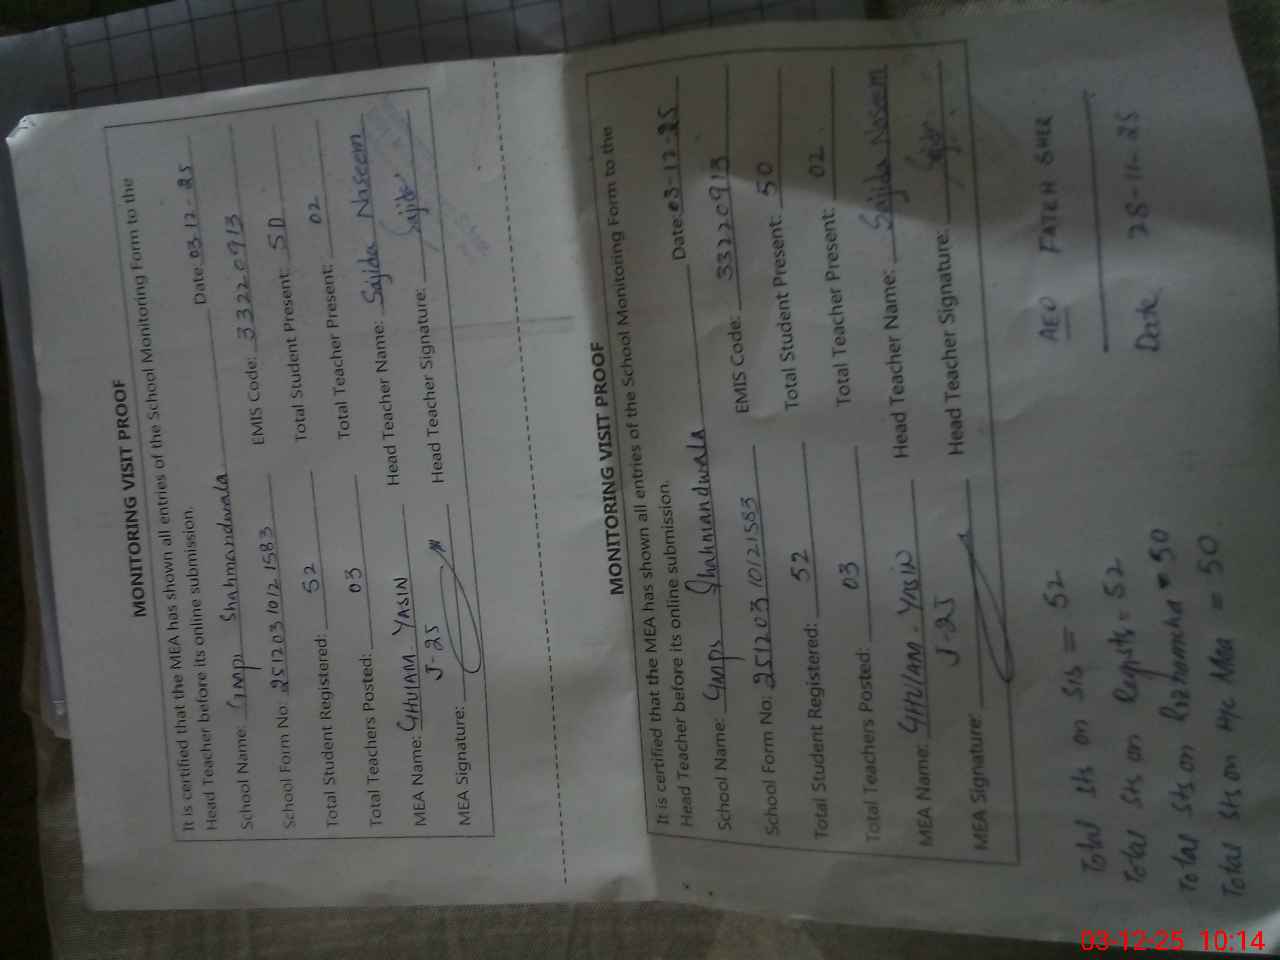 MONITORING VISIT PROOF
It is certified that the MEA has shown all entries of the School Monitoring Form to the
Head Teacher before its online submission.
School Name: GMPS Shahmandwala Date 03-12-25
School Form No: 2512031012 1583 EMIS Code: 33220913
Total Student Registered: 52 Total Student Present: 50
Total Teachers Posted: 03 Total Teacher Present: 02
MEA Name: GHULAM YASIN Head Teacher Name: Sajida Naseem
J-25
MEA Signature: Head Teacher Signature: Sajida
MONITORING VISIT PROOF
It is certified that the MEA has shown all entries of the School Monitoring Form to the
Head Teacher before its online submission.
School Name: GMPS Shahmandwala Date: 03-12-25
School Form No: 2512031012 1583 EMIS Code: 33220913
Total Student Registered: 52 Total Student Present: 50
Total Teachers Posted: 03 Total Teacher Present: 02
MEA Name: GHULAM YASIN Head Teacher Name: Sajida Naseem
J-25
MEA Signature: Head Teacher Signature:
Total sts on SIS = 52 AEO FATEH SHER
Total sts on Regists = 52
Total sts on = 50 Date 28-11-25
Total sts on Mea = 50
03-12-25 10:14